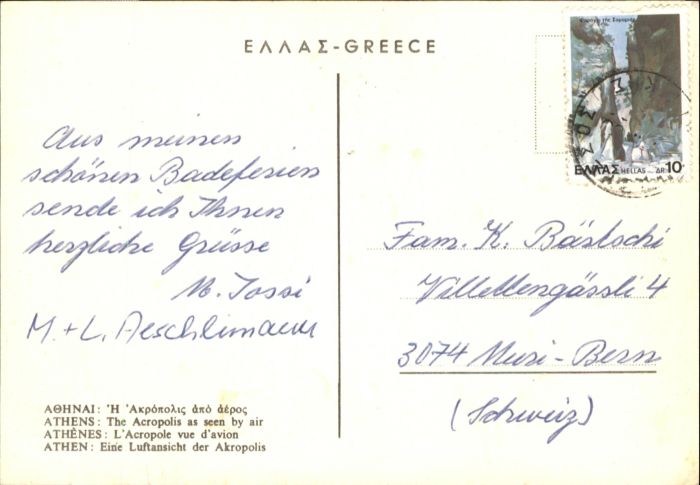 ΕΛΛΑΣ-GREECE
Φαράγγι τῆς Σαμαριᾶς
ΕΛΛΑΣ HELLAS ΔΡ 10
Aus meinen
schönen Badeferien
sende ich Ihnen
herzliche Grüsse
M. Jossi
M. + L. Aeschlimann
Fam. K. Bästschi
Villettengässli 4
3074 Muri-Bern
(Schweiz)
ΑΘΗΝΑΙ: Ἡ Ἀκρόπολις ἀπὸ ἀέρος
ATHENS: The Acropolis as seen by air
ATHÈNES: L'Acropole vue d'avion
ATHEN: Eine Luftansicht der Akropolis